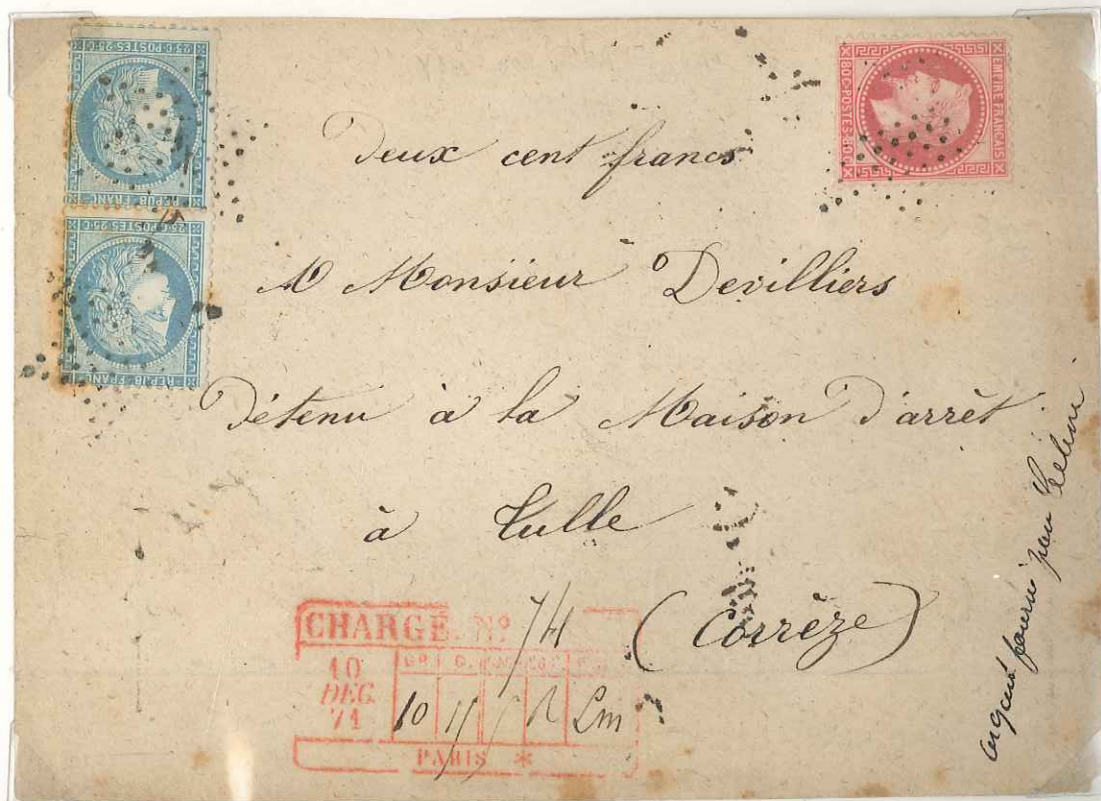 25·C·POSTES·25·C
REPUB·FRANC
25·C·POSTES·25·C
REPUB·FRANC
EMPIRE FRANÇAIS
80C·POSTES·80C
Deux cent francs
Monsieur Devilliers
Détenu à la Maison d'arrêt
à Tulle
(Corrèze)
CHARGÉ. Nº 74
10
DÉC.
71
10
Lm
PARIS *
fourni par